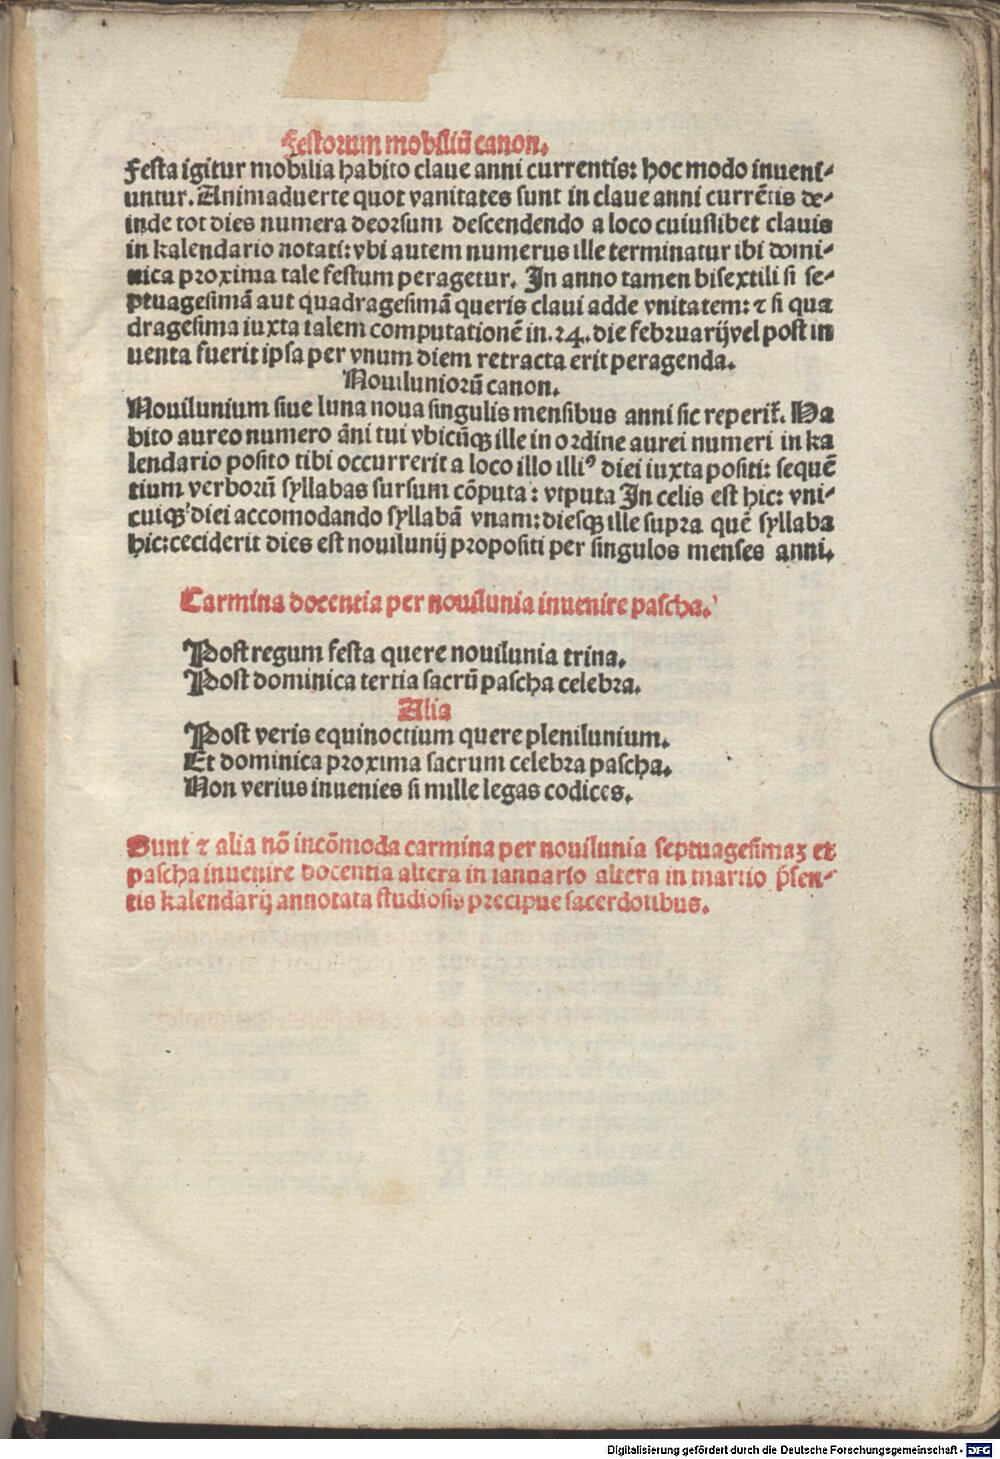 Festorum mobiliū canon.
Festa igitur mobilia habito claue anni currentis: hoc modo inueni-
untur. Animaduerte quot vanitates sunt in claue anni currētis de-
inde tot dies numera deorsum descendendo a loco cuiuslibet clauis
in kalendario notati: vbi autem numerus ille terminatur ibi domi-
nica proxima tale festum peragetur. In anno tamen bisextili si se-
ptuagesimā aut quadragesimā queris claui adde vnitatem: ⁊ si qua
dragesima iuxta talem computationē in .24. die februarij vel post in
uenta fuerit ipsa per vnum diem retracta erit peragenda.
Nouiluniorū canon.
Nouilunium siue luna noua singulis mensibus anni sic reperit̄. Ha
bito aureo numero āni tui vbicūqꝫ ille in ordine aurei numeri in ka
lendario posito tibi occurrerit a loco illo illiꝰ diei iuxta positi: sequē
tium verborū syllabas sursum cōputa: vtputa In celis est hic: vni-
cuiqꝫ diei accomodando syllabā vnam: diesqꝫ ille supra quē syllaba
hic: ceciderit dies est nouilunij propositi per singulos menses anni.
Carmina docentia per nouilunia inuenire pascha.
Post regum festa quere nouilunia trina.
Post dominica tertia sacrū pascha celebra.
Alia
Post veris equinoctium quere plenilunium.
Et dominica proxima sacrum celebra pascha.
Non verius inuenies si mille legas codices.
Sunt ⁊ alia nō incōmoda carmina per nouilunia septuagesimaꝫ et
pascha inuenire docentia altera in ianuario altera in martio p̄sen-
tis kalendarij annotata studiosis precipue sacerdotibus.
Digitalisierung gefördert durch die Deutsche Forschungsgemeinschaft - DFG